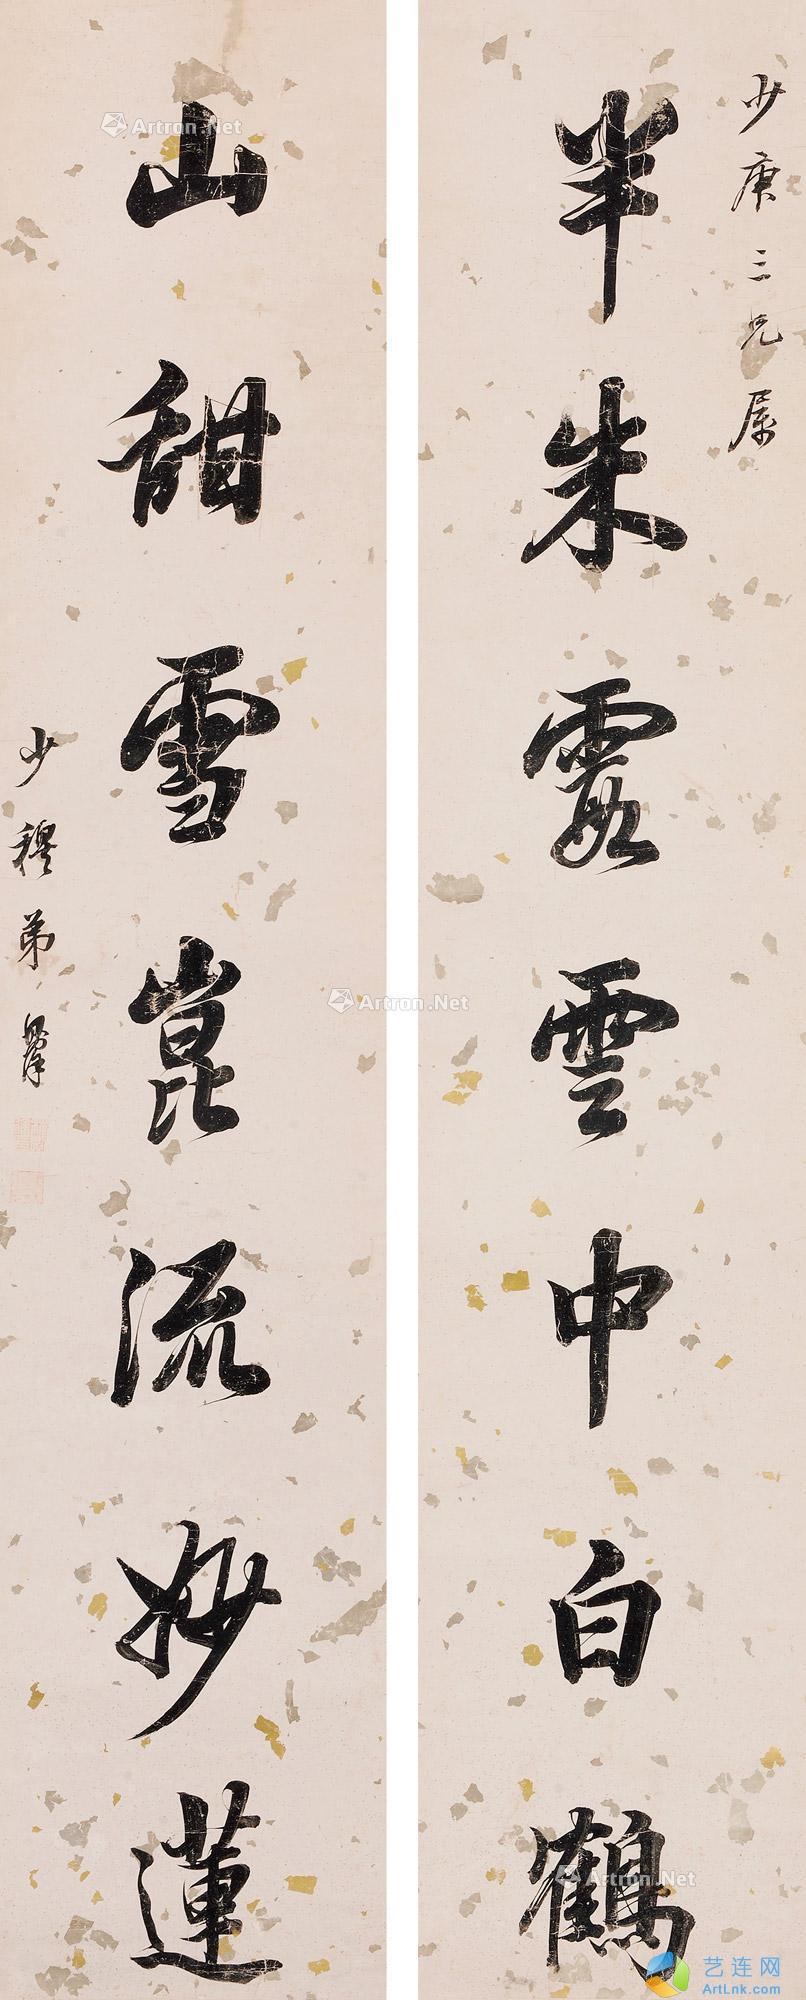 少庚三兄属
半朱霞雲中白鶴
山甜雪崑流妙蓮
少穆弟
Artron.Net
Artron.Net
Artron.Net
艺连网
ArtLnk.com